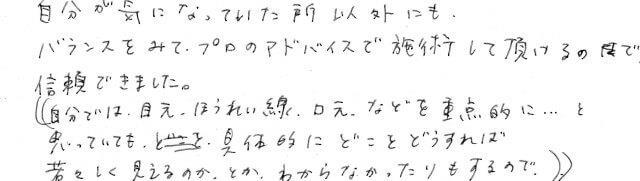 自分が気になっていた所以外にも、
バランスをみて、プロのアドバイスで施術して頂けるので
信頼できました。
((自分では、目元、ほうれい線、口元、などを重点的に…と
思っていても、具体的にどことどうすれば
若々しく見えるのか、とか、わからなかったりもするので、))